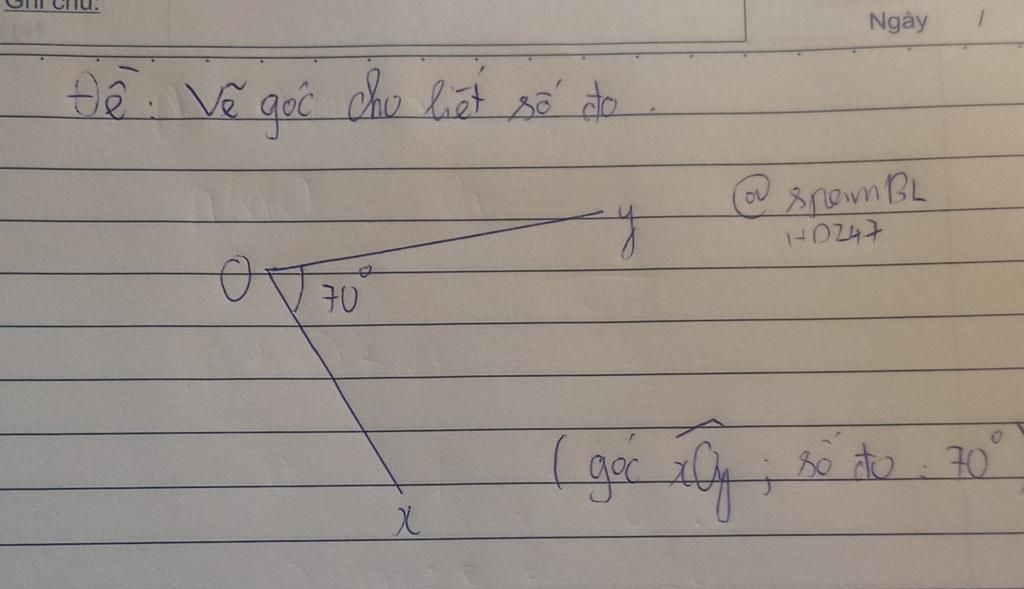 Ghi chú:
Ngày /
Đề: Vẽ góc cho biết số đo.
@spamBL
HD247
y
O
70°
(góc xOy; số đo: 70°)
x